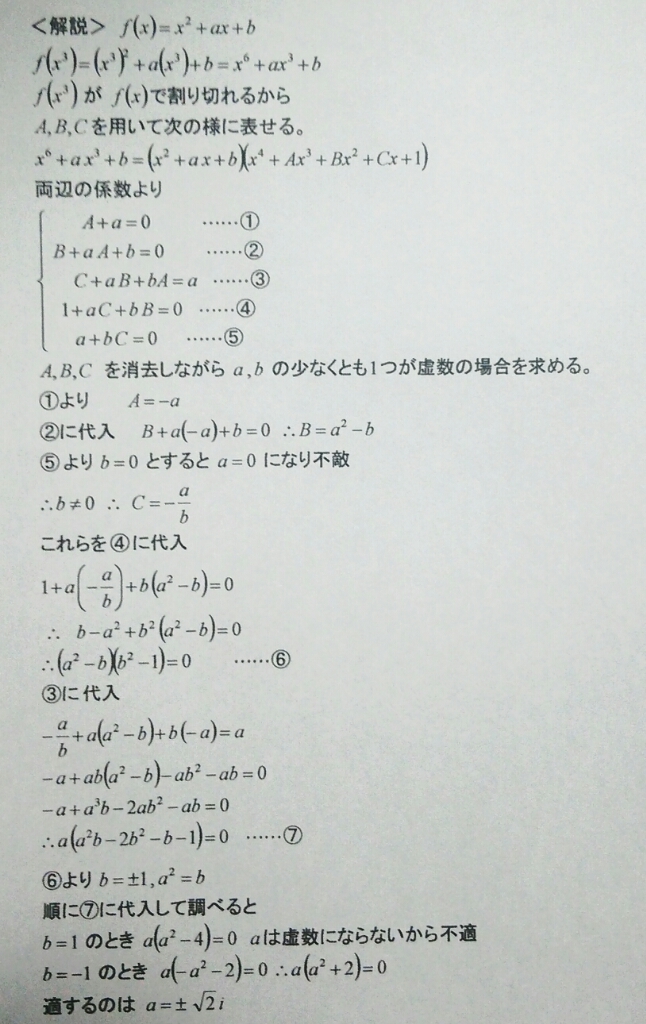 ＜解説＞ f(x)=x²+ax+b
f(x³)=(x³)²+a(x³)+b=x⁶+ax³+b
f(x³) が f(x)で割り切れるから
A,B,Cを用いて次の様に表せる。
x⁶+ax³+b=(x²+ax+b)(x⁴+Ax³+Bx²+Cx+1)
両辺の係数より
A+a=0 ……①
B+aA+b=0 ……②
C+aB+bA=a ……③
1+aC+bB=0 ……④
a+bC=0 ……⑤
A,B,C を消去しながら a,b の少なくとも1つが虚数の場合を求める。
①より A=-a
②に代入 B+a(-a)+b=0 ∴B=a²-b
⑤より b=0 とすると a=0 になり不敵
∴b≠0 ∴ C=-a/b
これらを④に代入
1+a(-a/b)+b(a²-b)=0
∴ b-a²+b²(a²-b)=0
∴(a²-b)(b²-1)=0 ……⑥
③に代入
-a/b+a(a²-b)+b(-a)=a
-a+ab(a²-b)-ab²-ab=0
-a+a³b-2ab²-ab=0
∴a(a²b-2b²-b-1)=0 ……⑦
⑥より b=±1,a²=b
順に⑦に代入して調べると
b=1 のとき a(a²-4)=0 aは虚数にならないから不適
b=-1 のとき a(-a²-2)=0 ∴a(a²+2)=0
適するのは a=±√2i